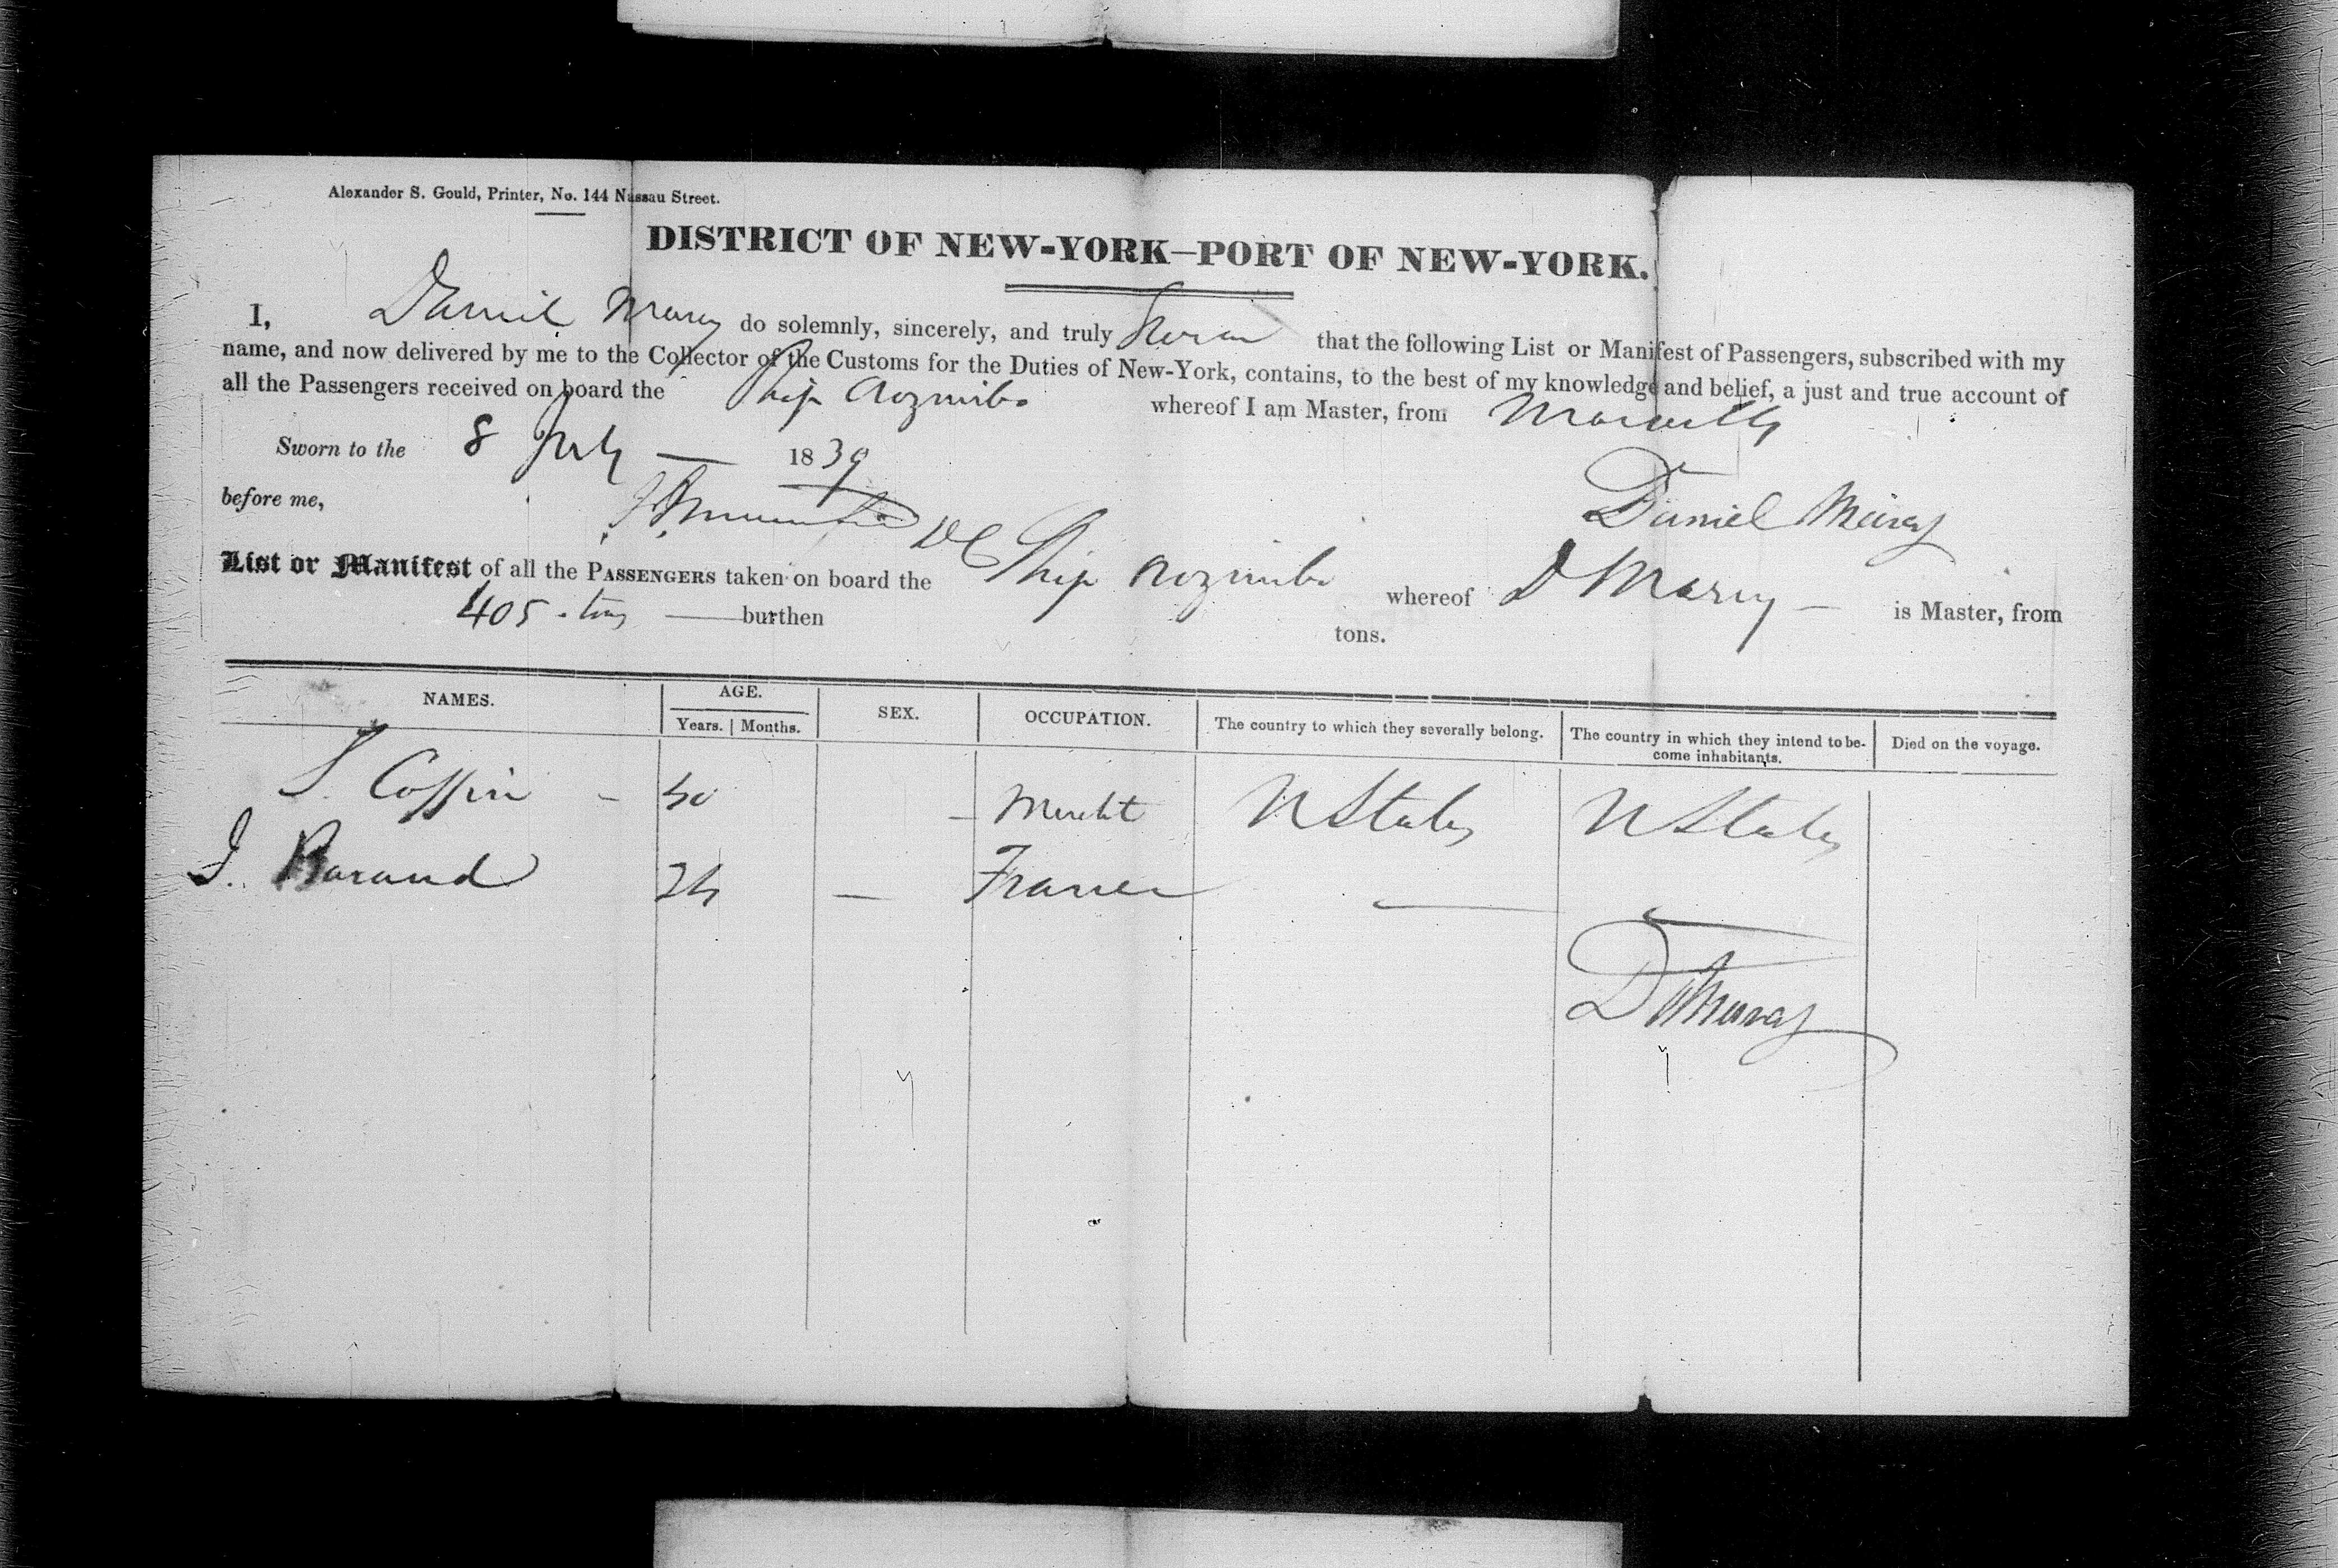 Alexander S. Gould, Printer, No. 144 Nassau Street.
DISTRICT OF NEW-YORK—PORT OF NEW-YORK.
I, Daniel do solemnly, sincerely, and truly Swear that the following List or Manifest of Passengers, subscribed with my
name, and now delivered by me to the Collector of the Customs for the Duties of New-York, contains, to the best of my knowledge and belief, a just and true account of
all the Passengers received on board the Ship whereof I am Master, from
Sworn to the 8 July — 1839
before me,
Daniel
List or Manifest of all the PASSENGERS taken on board the Ship whereof D is Master, from
405 tons — burthen tons.
NAMES. AGE. SEX. OCCUPATION. The country to which they severally belong. The country in which they intend to be- Died on the voyage.
Years. | Months. come inhabitants.
Coffin – 40 – Mercht U States U States
J. Barand 24 — France —
D